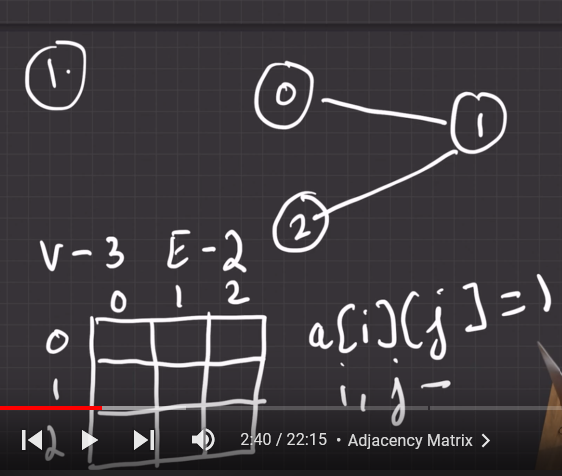 1.
0
1
2
V - 3 E - 2
0 1 2
0
a[i][j] = 1
1
i, j -
2
2:40 / 22:15 • Adjacency Matrix